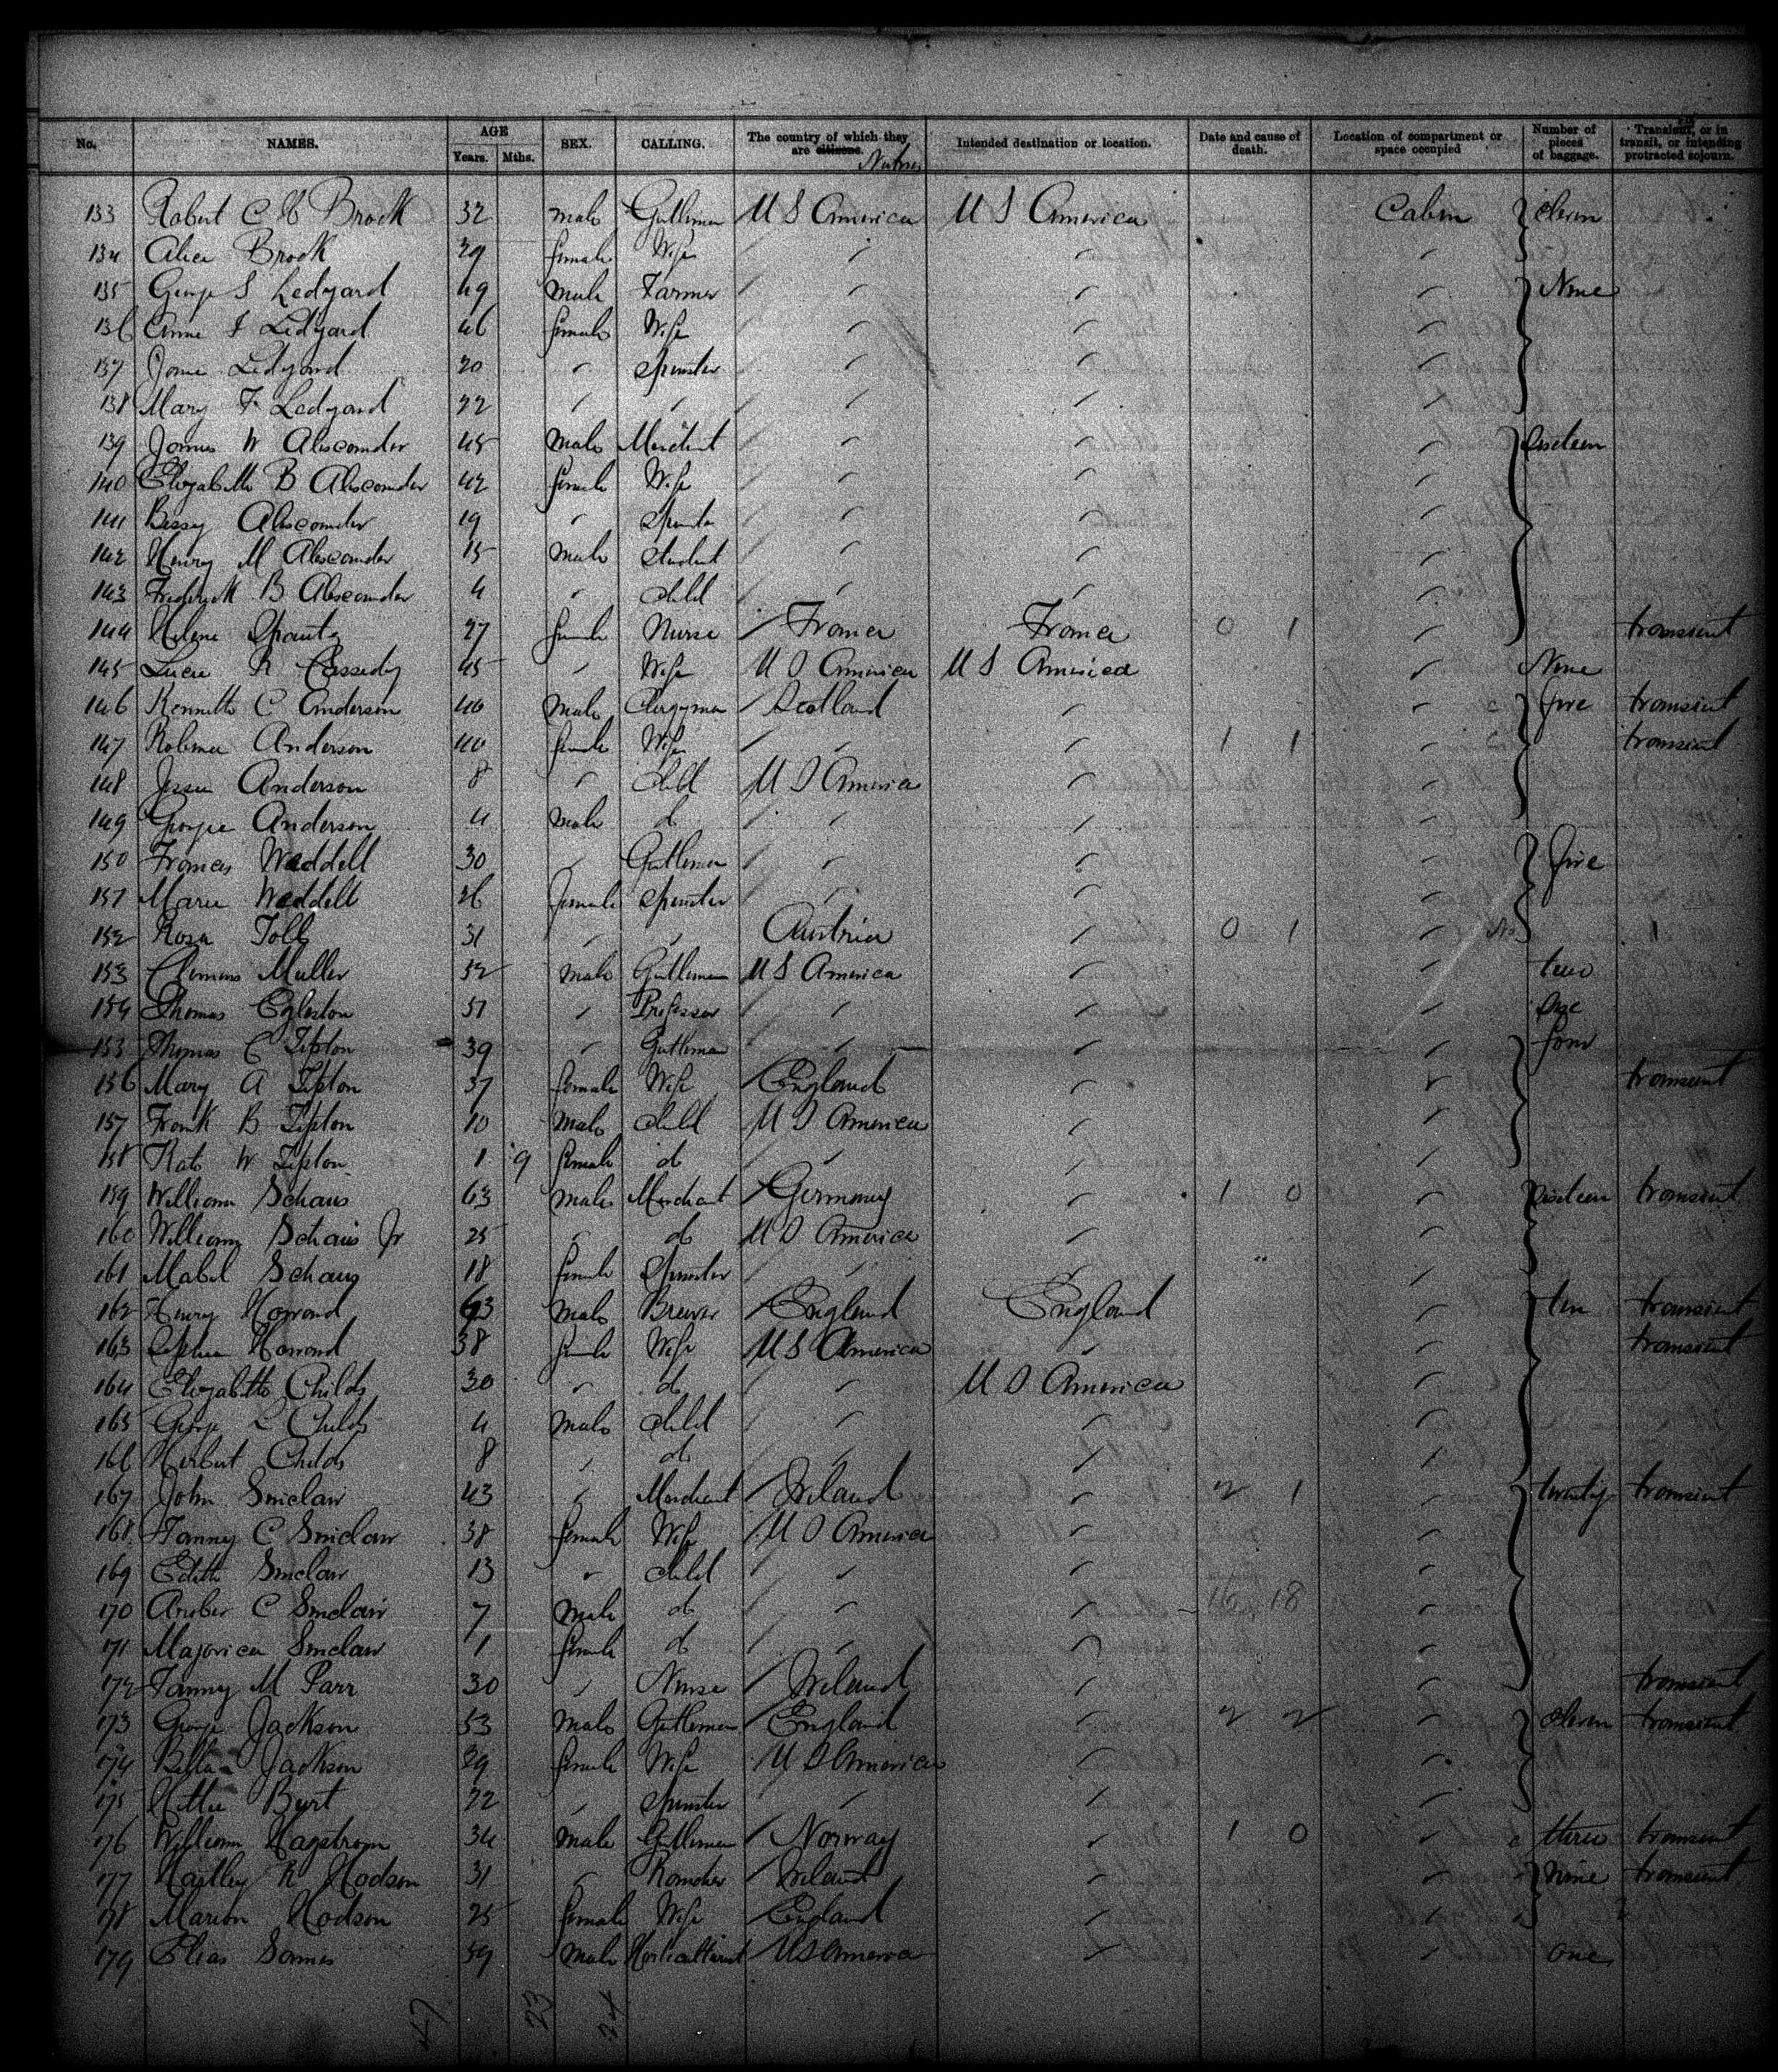 No. NAMES. AGE Years. Mths. SEX. CALLING. The country of which they are citizens. Natives Intended destination or location. Date and cause of death. Location of compartment or space occupied Number of pieces of baggage. Transient, or in transit, or intending protracted sojourn.
133 Robert C H Brock 32 male Gentleman U S America U S America Cabin eleven
134 Alice Brock 29 female Wife
135 George S Ledyard 49 male Farmer Nine
136 Anne F Ledyard 46 female Wife
137 Ledyard 20 " Spinster
138 Mary F Ledyard 22 " "
139 James W Alexander 45 male Merchant sixteen
140 Elizabeth B Alexander 42 female Wife
141 Bessy Alexander 19 " Spinster
142 Henry M Alexander 15 male Student
143 Frederick B Alexander 4 " child
144 Helene 27 female Nurse France France 0 1 transient
145 Lucie R Cassedy 45 " Wife U S America U S America None
146 Kenneth C Anderson 40 male Clergyman Scotland " five transient
147 Anderson 40 female Wife " " 1 1 transient
148 Jessie Anderson 8 " child U S America
149 George Anderson 4 male do
150 Frances Waddell 30 " Gentleman five
151 Marie Waddell 26 female Spinster
152 Rosa Toll 31 " " Austria " 0 1
153 Clemens Muller 52 male Gentleman U S America two
154 Thomas Egleston 51 " Professor one
155 Thomas C Tipton 39 " Gentleman four
156 Mary A Tipton 37 female Wife England " transient
157 Frank B Tipton 10 male child U S America
158 Kate W Tipton 1 9 female do
159 William Schaus 63 male Merchant Germany " 1 0 sixteen transient
160 William Schaus Jr 25 " do U S America
161 Mabel Schaus 18 female Spinster
162 Henry 63 male Brewer England England ten transient
163 38 female Wife U S America " transient
164 Elizabeth Childs 30 " do " U S America
165 George L Childs 4 male child
166 Herbert Childs 8 " do
167 John Sinclair 43 " Merchant Ireland " 2 1 twenty transient
168 Fanny C Sinclair 38 female Wife U S America
169 Edith Sinclair 13 " child
170 C Sinclair 7 male do 16 18
171 Sinclair 1 female do
172 Fanny M Parr 30 " Nurse Ireland " transient
173 George Jackson 53 male Gentleman England " 2 2 eleven transient
174 Bella Jackson 29 female Wife U S America
175 Hattie Burt 22 " Spinster
176 William Hagstrom 34 male Gentleman Norway " 1 0 three transient
177 Hartley R Hodson 31 " Rancher Ireland " nine transient
178 Marion Hodson 25 female Wife England
179 Elias 59 male Horticulturist U S America one
47 23 24